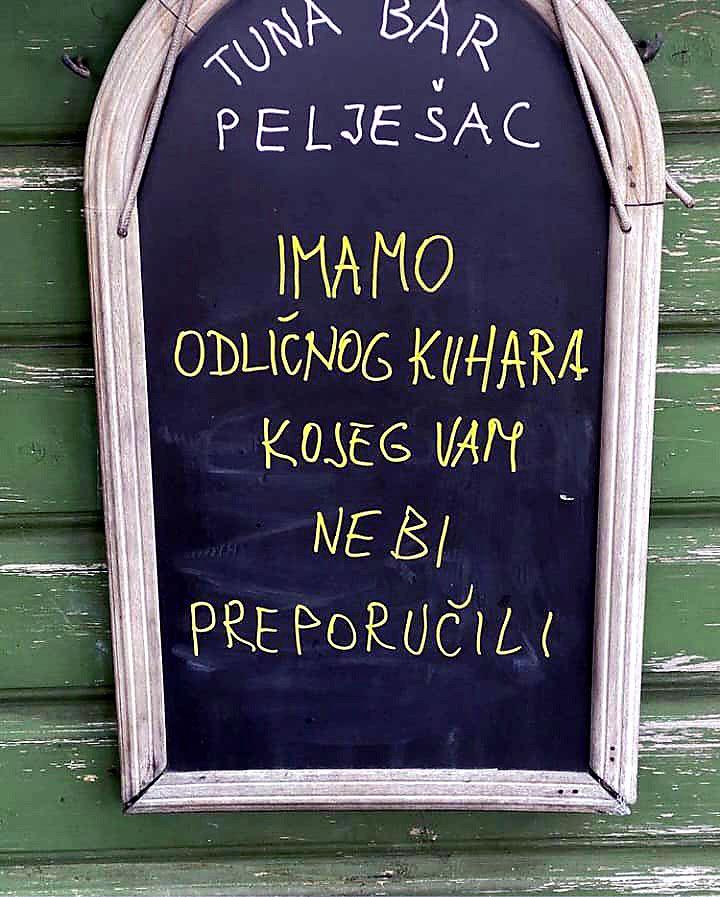 TUNA BAR
PELJEŠAC
IMAMO
ODLIČNOG KUHARA
KOJEG VAM
NEBI
PREPORUČILI